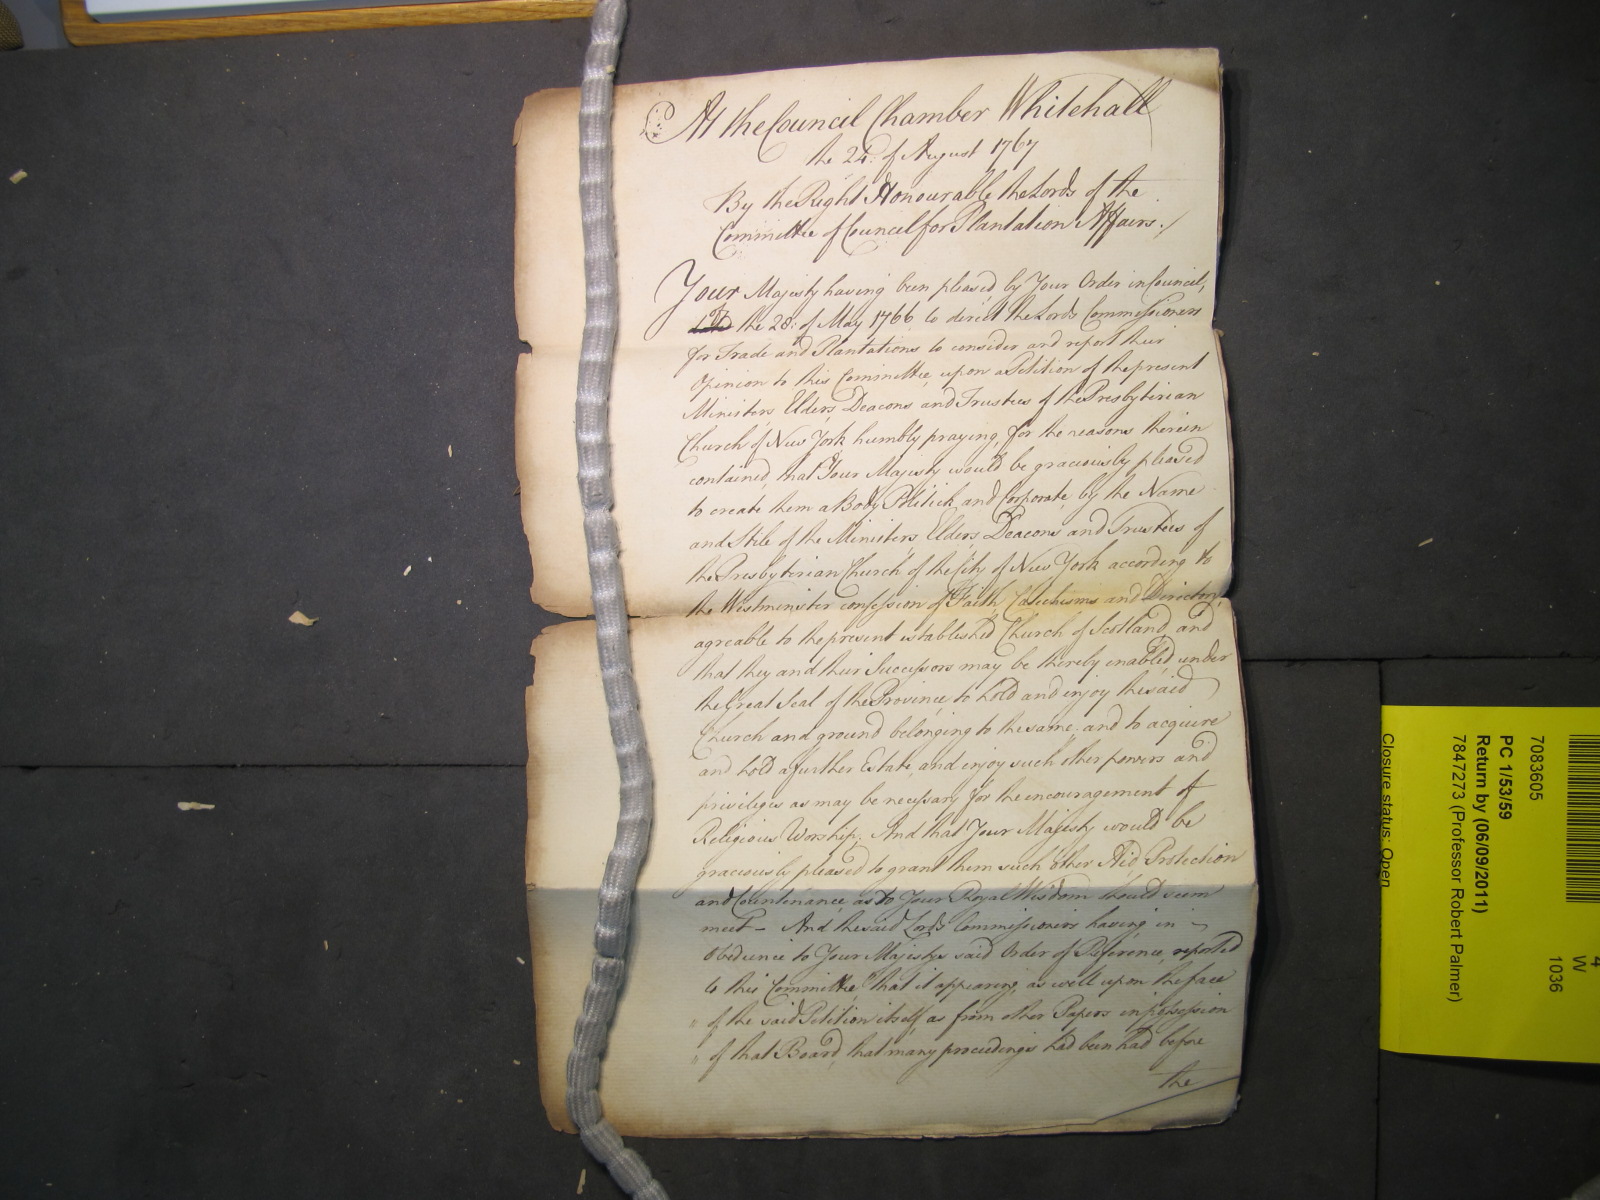 At the Council Chamber Whitehall
the 24: of August 1767
By the Right Honourable the Lords of the
Committee of Council for Plantation Affairs./
Your Majesty having been pleased by Your Order in Council,
the 28: of May 1766 to direct the Lords Commissioners
for Trade and Plantations to consider and report their
Opinion to this Committee, upon a Petition of the present
Ministers, Elders, Deacons and Trustees of the Presbyterian
Church of New York humbly praying, for the reasons therein
contained, that Your Majesty would be graciously pleased
to create them a Body Politick and Corporate, by the Name
and Stile of the Ministers, Elders, Deacons and Trustees of
the Presbyterian Church of the City of New York according to
the Westminster confession of Faith, Catechisms and Directory,
agreable to the present established Church of Scotland, and
that they and their Successors may be thereby enabled, under
the Great Seal of the Province, to hold and enjoy the said
Church and ground belonging to the same, and to acquire
and hold a further Estate, and enjoy such other powers and
privileges as may be necessary for the encouragement of
Religious Worship; And that Your Majesty would be
graciously pleased to grant them such other Aid, Protection
and Countenance, as to Your Royal Wisdom should seem
meet – And the said Lords Commissioners having in
Obedience to Your Majestys said Order of Reference, reported
to this Committee, "that it appearing, as well upon the face
" of the said Petition itself, as from other Papers in possession
" of that Board, that many proceedings had been had before
the
7083605
PC 1/53/59
Return by (06/09/2011)
7847273 (Professor Robert Palmer)
Closure status: Open
4
W
1036